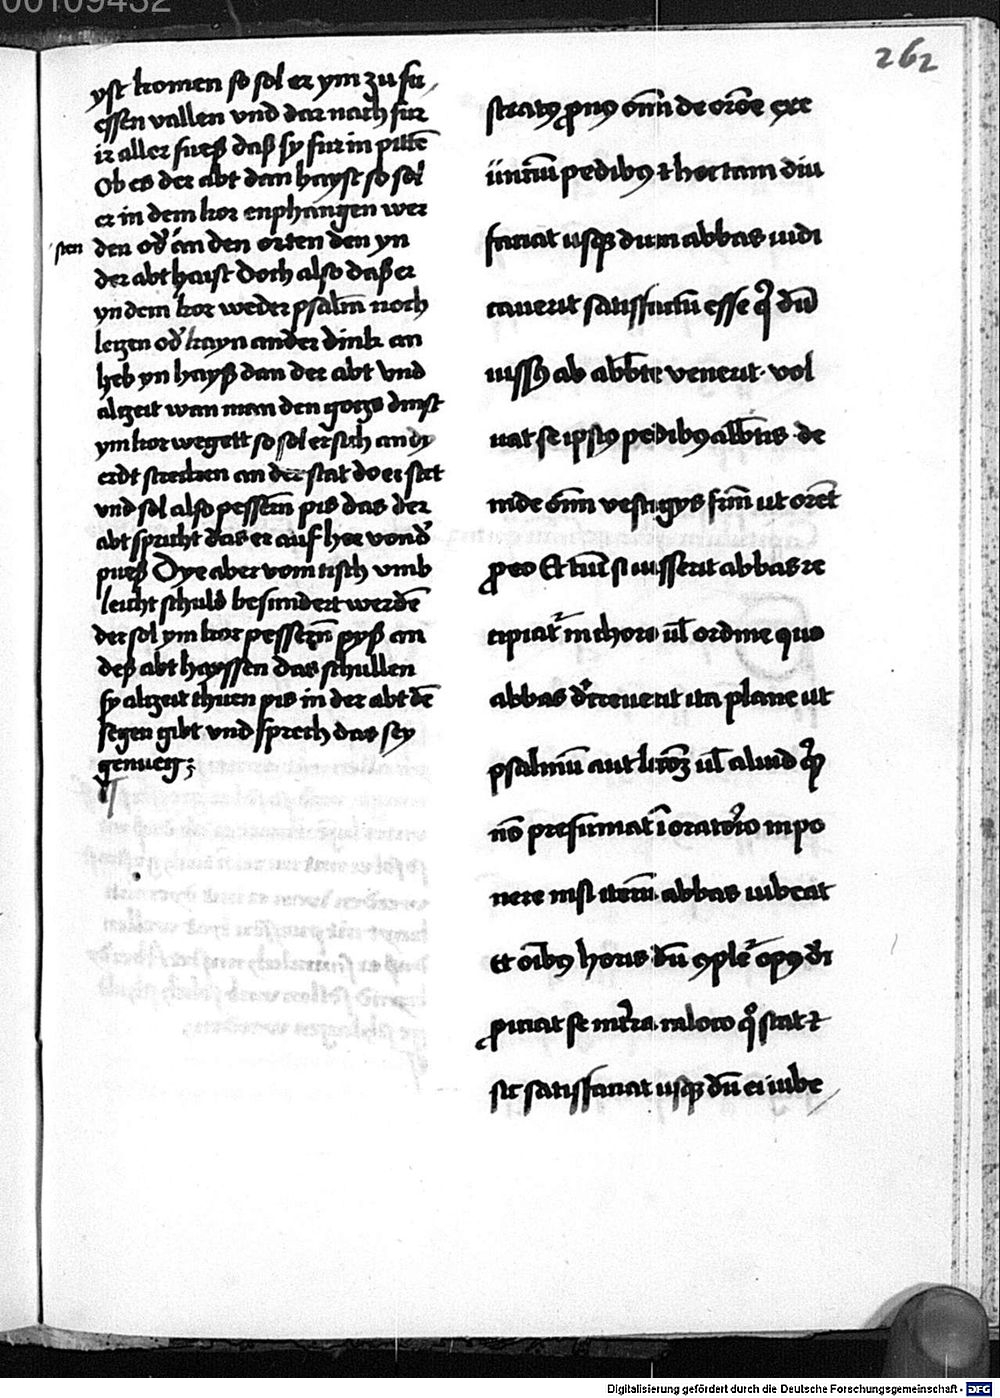 00109432
262
yst komen so sol er ym zu fu
essen vallen vnd dar nach fur
ir aller fueß daß sy fur in pittē
Ob es der abt dan hayst so sol
er in dem kor enphangen wer
sten den od̓ an den orten den yn
der abt haist doch also daß er
yn dem kor weder psalm noch
leczen od̓ kayn ander dink an
heb yn hayß dan der abt vnd
alczeit wan man den gotzs dinst
ym kor wegett so sol er sich an dy
erdt strecken an der stat do er stet
vnd sol also pessern pis das der
abt spricht das er auf hor von d̓
pueß Dye aber vom tisch vmb
leicht schuld besundert werdē
der sol ym kor pessern pyß an
deß abt hayssen das schullen
sy alczeit thuen pis in der abt dē
segen gibt vnd sprech das sey
genueg;
stratꝰ ꝓnꝰ om̄i de oroē exe
untiū pedibꝰ ⁊ hoc tam diu
faciat usqꝫ dum abbas iudi
caverit satisfactū esse q̇ dū
iussꝰ ab abb̄te venerit vol
uat se ipsiꝰ pedibꝰ abb̄tis de
inde om̄i vestigys fr̄m ut oret̄
ꝓ eo Et tūc si iusserit abbas re
cipiat᷑ in choro ul̓ ordine quo
abbas d̓creuerit ita plane ut
psalmū aut lc̄oꝫ ul̓ aliud qͥꝑ
nō presumat ī orator̓io inpo
nere nisi iterū abbas iubeat
Et oībꝰ horis dū ꝯplet᷑ opꝰ dī
ꝓiciat se in tr̄ra in loco qͦ stat ⁊
sic satisfaciat usqꝫ dū ei iube
Digitalisierung gefördert durch die Deutsche Forschungsgemeinschaft - DFG